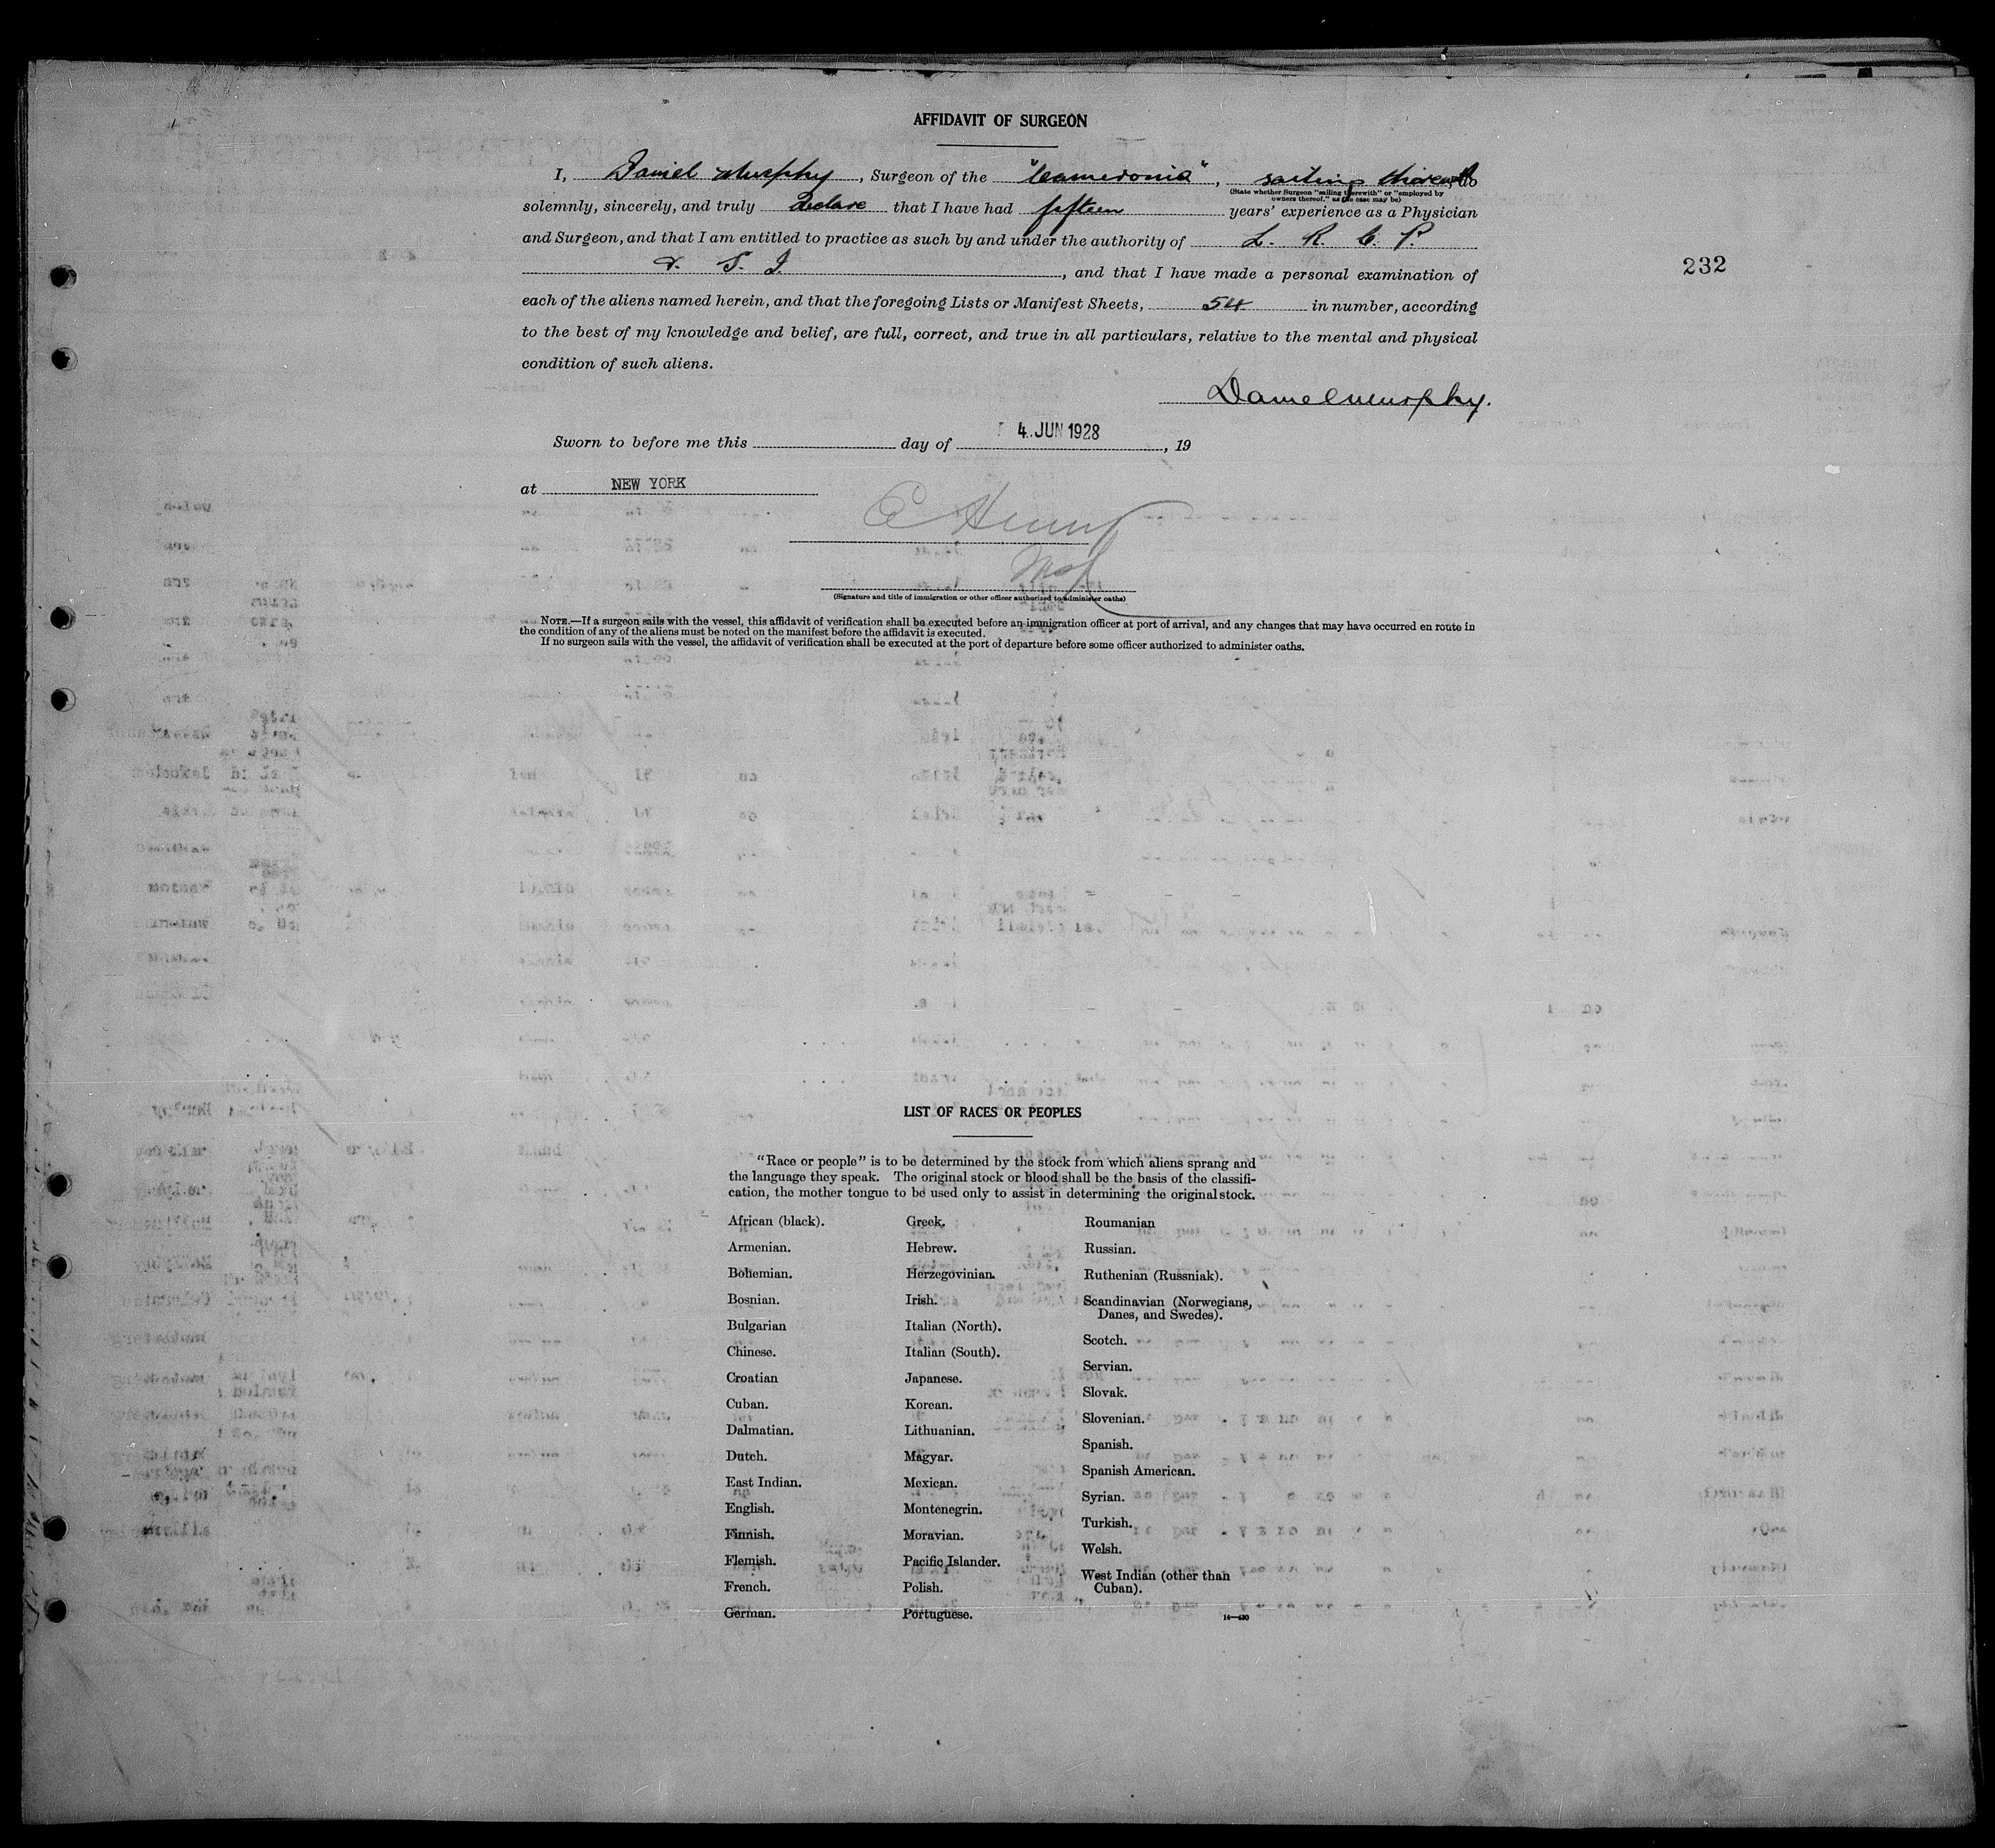 AFFIDAVIT OF SURGEON
I, Daniel Murphy, Surgeon of the "Cameronia", sailing therewith, do
(State whether Surgeon "sailing therewith" or "employed by
owners thereof," as the case may be)
solemnly, sincerely, and truly declare that I have had fifteen years' experience as a Physician
and Surgeon, and that I am entitled to practice as such by and under the authority of L. R. C. P.
& S. I., and that I have made a personal examination of
232
each of the aliens named herein, and that the foregoing Lists or Manifest Sheets, 54 in number, according
to the best of my knowledge and belief, are full, correct, and true in all particulars, relative to the mental and physical
condition of such aliens.
Daniel Murphy.
Sworn to before me this day of 4 JUN 1928, 19
at NEW YORK
(Signature and title of immigration or other officer authorized to administer oaths)
NOTE.—If a surgeon sails with the vessel, this affidavit of verification shall be executed before an immigration officer at port of arrival, and any changes that may have occurred en route in
the condition of any of the aliens must be noted on the manifest before the affidavit is executed.
If no surgeon sails with the vessel, the affidavit of verification shall be executed at the port of departure before some officer authorized to administer oaths.
LIST OF RACES OR PEOPLES
"Race or people" is to be determined by the stock from which aliens sprang and
the language they speak. The original stock or blood shall be the basis of the classifi-
cation, the mother tongue to be used only to assist in determining the original stock.
African (black).
Armenian.
Bohemian.
Bosnian.
Bulgarian
Chinese.
Croatian
Cuban.
Dalmatian.
Dutch.
East Indian.
English.
Finnish.
Flemish.
French.
German.
Greek.
Hebrew.
Herzegovinian.
Irish.
Italian (North).
Italian (South).
Japanese.
Korean.
Lithuanian.
Magyar.
Mexican.
Montenegrin.
Moravian.
Pacific Islander.
Polish.
Portuguese.
Roumanian
Russian.
Ruthenian (Russniak).
Scandinavian (Norwegians,
Danes, and Swedes).
Scotch.
Servian.
Slovak.
Slovenian.
Spanish.
Spanish American.
Syrian.
Turkish.
Welsh.
West Indian (other than
Cuban).